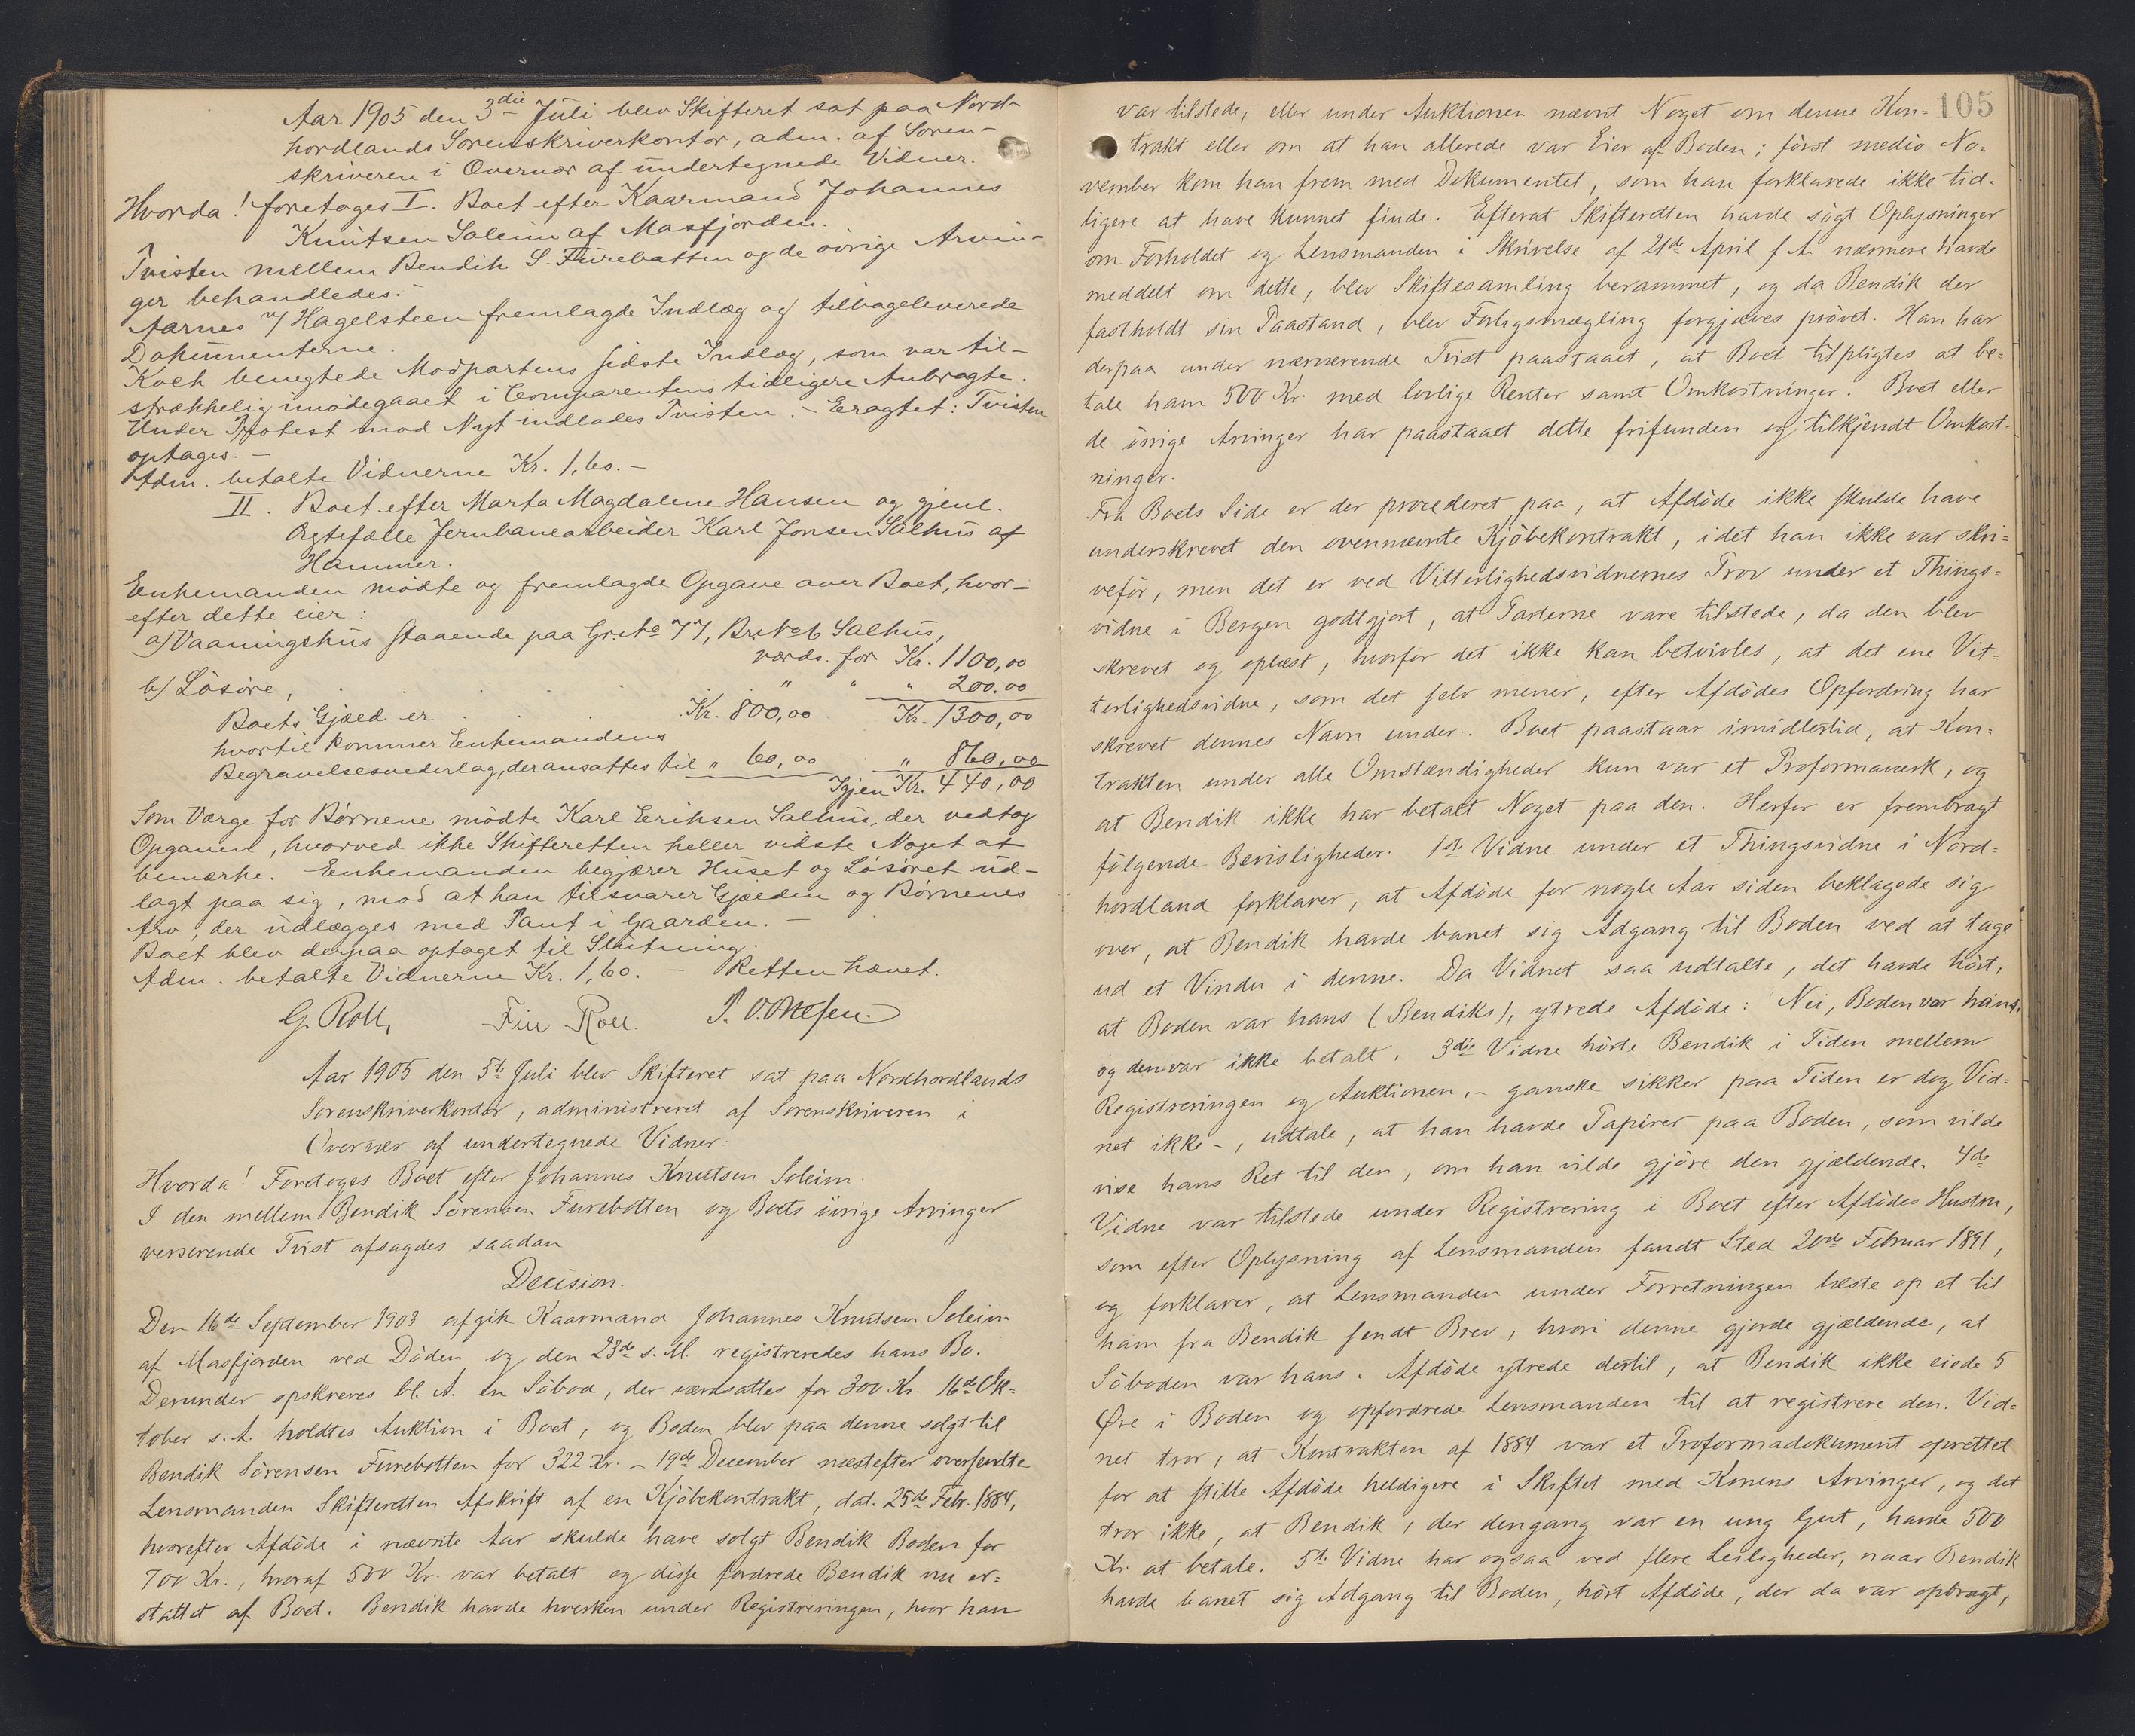 Aar 1905 den 3die Juli blev Skifteret sat paa Nord-
hordlands Sorenskriverkontor, adm. af Soren-
skriveren i Overvær af undertegnede Vidner.
Hvorda! foretages I. Boet efter Kaarmand Johannes
Knutsen Soleim af Masfjorden.
Tvisten mellem Bendik S. Furebotten og de øvrige Arvin-
ger behandledes.
Aarnes v/ Hagelsteen fremlagde Indlæg og tilbageleverede
Dokumenterne.
Koch benegtede Modpartens sidste Indlæg, som var til-
strækkelig imødegaaet i Comparentens tidligere Anbragte.
Under Protest mod Nyt indlodes Tvisten. - Eragtet: Tvisten
optages. -
Adm. betalte Vidnerne Kr. 1,60. -
II. Boet efter Marta Magdalene Hansen og gjenl.
Ægtefælle Jernbanearbeider Karl Jonsen Salhus af
Hammer.
Enkemanden mødte og fremlagde Opgave over Boet, hvor-
efter dette eier:
a) Vaaningshus staaende paa Grno 77, Brno 6 Salhus,
værds. for Kr. 1100,00
b) Løsøre, . " " " 200.00
Boets Gjæld er . . . Kr. 800,00 Kr. 1300,00
hvortil kommer Enkemandens
Begravelsesvederlag, der ansattes til " 60,00 " 860,00
Igjen Kr. 440,00
Som Værge for Børnene mødte Karl Eriksen Salhus, der vedtog
Opgaven, hvorved ikke Skifteretten heller vidste Noget at
bemærke. Enkemanden begjærer Huset og Løsøret ud-
lagt paa sig, mod at han tilsvarer Gjælden og Børnenes
Arv, der udlægges med Pant i Gaarden. -
Boet blev derpaa optaget til Slutning.
Adm. betalte Vidnerne Kr. 1,60. - Retten hævet.
G. Roll, Fin Roll. P. O. Ottesen.
Aar 1905 den 5te Juli blev Skifteret sat paa Nordhordlands
Sorenskriverkontor, administreret af Sorenskriveren i
Overvær af undertegnede Vidner.
Hvorda! Foretoges Boet efter Johannes Knutsen Soleim.
I den mellem Bendik Sörensen Furebotten og Boets övrige Arvinger
verserende Tvist afsagdes saadan
Decision.
Den 16de September 1903 afgik Kaarmand Johannes Knutsen Soleim
af Masfjorden ved Döden og den 23de s. M. registreredes hans Bo.
Derunder opskreves bl. A. en Söbod, der værdsattes for 300 Kr. 16de Ok=
tober s. A. holdtes Auktion i Boet, og Boden blev paa denne solgt til
Bendik Sörensen Furebotten for 322 Kr. - 19de December næstefter oversendte
Lensmanden Skifteretten Afskrift af en Kjöbekontrakt, dat. 25de Febr. 1884,
hvorefter Afdöde i nævnte Aar skulde have solgt Bendik Boden for
700 Kr., hvoraf 500 Kr. var betalt og disse fordrede Bendik nu er=
stattet af Boet. Bendik havde hverken under Registreringen, hvor han
105
var tilstede, eller under Auktionen nævnt Noget om denne Kon=
trakt eller om at han allerede var Eier af Boden; först medio No=
vember kom han frem med Dokumentet, som han forklarede ikke tid=
ligere at have kunnet finde. Efterat Skifteretten havde sögt Oplysninger
om Forholdet og Lensmanden i Skrivelse af 21de April f. A. nærmere havde
meddelt om dette, blev Skiftesamling berammet, og da Bendik der
fastholdt sin Paastand, blev Forligsmægling forgjæves prövet. Han har
derpaa under nærværende Tvist paastaaet, at Boet tilpligtes at be=
tale ham 500 Kr. med lovlige Renter samt Omkostninger. Boet eller
de övrige Arvinger har paastaaet dette frifunden og tilkjendt Omkost=
ninger.
Fra Boets Side er der procederet paa, at Afdöde ikke skulde have
underskrevet den ovennævnte Kjöbekontrakt, idet han ikke var skri=
veför, men det er ved Vitterlighedsvidnernes Prov under et Things=
vidne i Bergen godtgjort, at Parterne vare tilstede, da den blev
skrevet og oplæst, hvorfor det ikke kan betvivles, at det ene Vit=
terlighedsvidne, som det selv mener, efter Afdödes Opfordring har
skrevet dennes Navn under. Boet paastaar imidlertid, at Kon=
trakten under alle Omstændigheder kun var et Proformaværk, og
at Bendik ikke har betalt Noget paa den. Herfor er frembragt
fölgende Bevisligheder. 1ste Vidne under et Thingsvidne i Nord=
hordland forklarer, at Afdöde for nogle Aar siden beklagede sig
over, at Bendik havde banet sig Adgang til Boden ved at tage
ud et Vindu i denne. Da Vidnet saa udtalte, det havde hört,
at Boden var hans (Bendiks), ytrede Afdöde: Nei, Boden var hans,
og den var ikke betalt. 3die Vidne hörte Bendik i Tiden mellem
Registreringen og Auktionen, - ganske sikker paa Tiden er dog Vid=
net ikke -, udtale, at han havde Papirer paa Boden, som vilde
vise hans Ret til den, om han vilde gjöre den gjældende. 4de
Vidne var tilstede under Registrering i Boet efter Afdödes Hustru,
som efter Oplysning af Lensmanden fandt Sted 20de Februar 1891,
og forklarer, at Lensmanden under Forretningen læste op et til
ham fra Bendik sendt Brev, hvori denne gjorde gjældende, at
Söboden var hans. Afdöde ytrede dertil, at Bendik ikke eiede 5
Øre i Boden og opfordrede Lensmanden til at registrere den. Vid=
net tror, at Kontrakten af 1884 var et Proformadokument oprettet
for at stille Afdöde heldigere i Skiftet med Konens Arvinger, og det
tror ikke, at Bendik, der dengang var en ung Gut, havde 500
Kr. at betale. 5te Vidne har ogsaa ved flere Leiligheder, naar Bendik
havde banet sig Adgang til Boden, hört Afdöde, der da var opbragt,